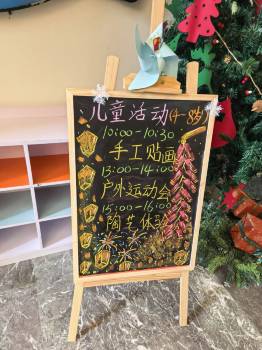 儿童活动(4-8岁)
10:00-10:30
手工贴画
13:00-14:00
户外运动会
15:00-16:00
陶艺体验